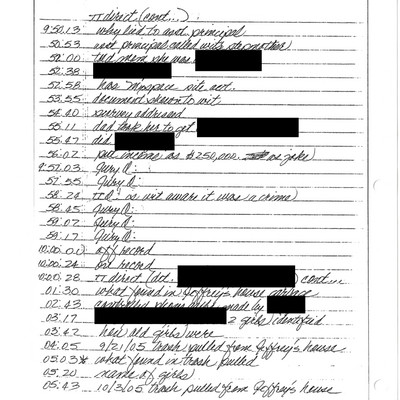 π direct (cont...):
9:50:13 why lied to asst principal
50:53 asst principal called wit's stepmother
52:00 told mom she was
52:38
52:58 has myspace site acct.
53:55 document shown to wit
54:40 survey addressed
55:11 dad took her to get
55:47 did
56:02 put income as $250,000 as joke)
9:57:03 Jury Q:
57:55 Jury Q:
58:24 π Q: is wit aware it was (a crime)
58:45 Jury Q:
59:02 Jury Q:
59:17 Jury Q:
10:00:00 off record
10:00:24 on record
10:00:28 π direct (det. cont...
01:30 what found in Joffrey's house garbage
02:43 controlled phone call made by
03:17 2 girls identified
03:42 how old girls were
04:05 9/21/05 trash pulled from Joffrey's house
05:03* what found in trash pulled
05:20 names of girls
05:43 10/3/05 trash pulled from Joffrey's house